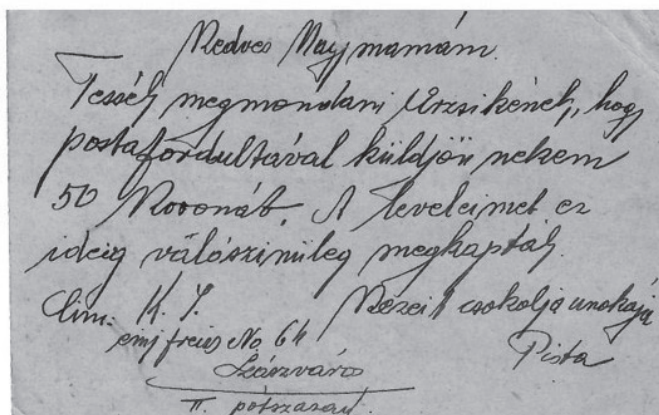 Kedves Nagymamám
Tessék megmondani Erzsikének, hogy
postafordultával küldjön nekem
50 Koronát. A leveleimet ez
ideig válószinüleg megkapták.
Cím: K. I. Kézeit csokolja unokája
einj freiw No 64 Pista
Szászváros
II. pótszázad.